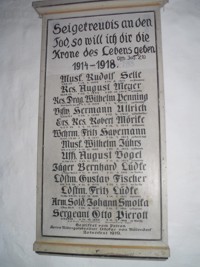 Sei getreu bis an den
Tod, so will ich dir die
Krone des Lebens geben
1914-1918.
Musk. Rudolf Selle
Res. August Meyer
Res. Drag. Wilhelm Penning
Vzfw. Hermann Ullrich
Ers. Res. Robert Möricke
Wehrm. Fritz Havemann
Musk. Wilhelm Jührs
Uffz. August Vogel
Jäger Bernhard Lüdke
Ldstm. Gustav Fischer
Ldstm. Fritz Lüdke
Arm. Sold. Johann Smolka
Sergeant Otto Pieroll
Gestiftet vom Patron